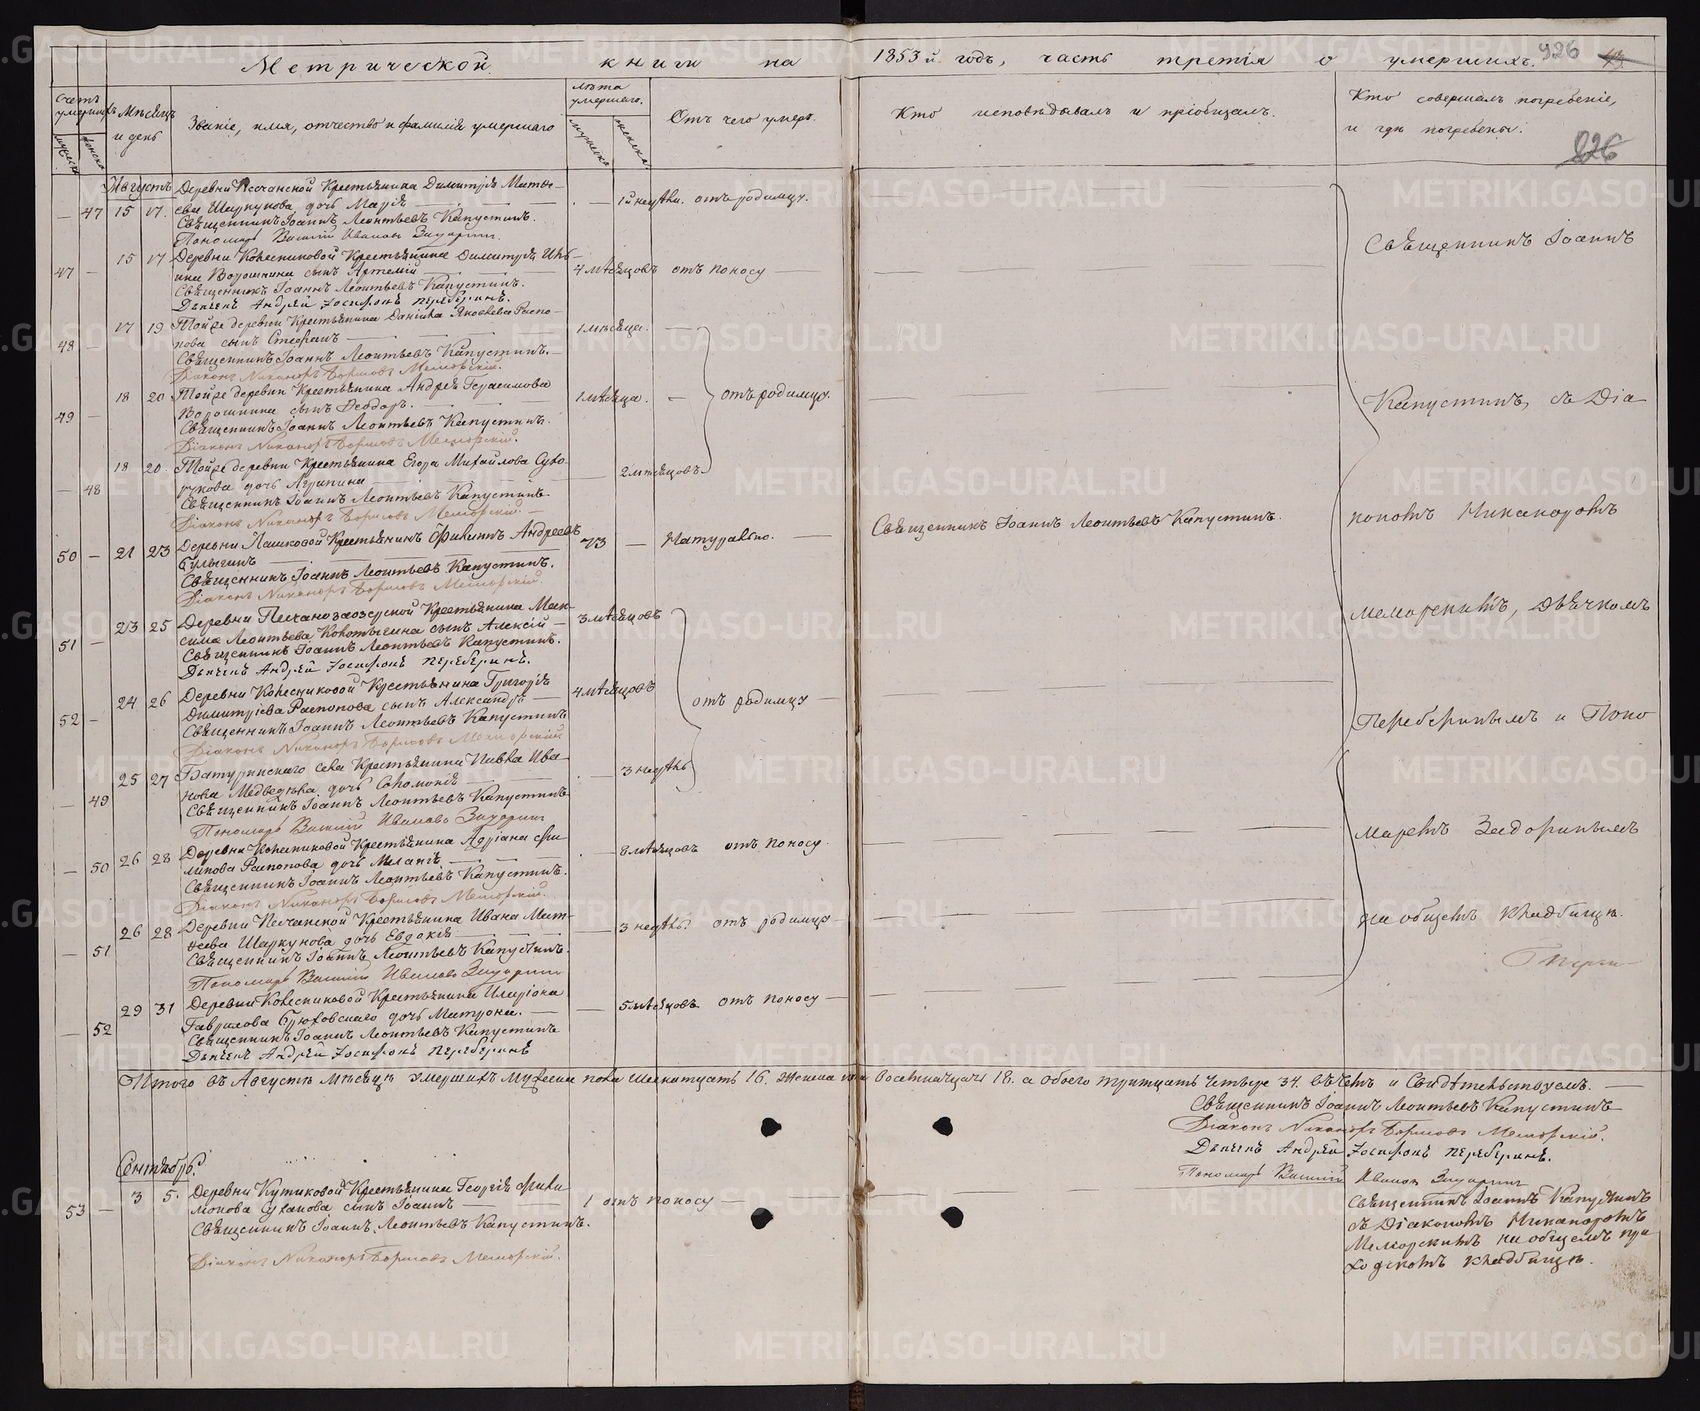 Метрической книги на 1853й годъ, часть третія о умершихъ. 926
Счетъ умершихъ
мужеска
женска
Мѣсяцъ и день
Званіе, имя, отчество и фамилія умершаго
Лѣта умершаго.
мужеска
женска
Отъ чего умеръ.
Кто исповѣдывалъ и пріобщалъ.
Кто совершалъ погребеніе,
и гдѣ погребены.
826
Августъ
— 47 15 17. Деревни Песчанской Крестьянина Димитрія Матѳе—
ева Шаркунова дочь Марія — — 1й недѣли. отъ родимцу.
Священникъ Іоаннъ Леонтьевъ Капустинъ.
Пономарь Василій Ивановъ
47 — 15 17 Деревни Колесниковой Крестьянина Димитрія
Ворошнина сынъ Артемій 4 мѣсяцовъ отъ поносу —
Священникъ Іоаннъ Леонтьевъ Капустинъ.
Дьячекъ Андрей Іосифовъ Переберинъ.
48 — 17 19 Тойже деревни Крестьянина Даніила Яковлева Распо—
пова сынъ Стефанъ — 1 мѣсяца. —
Священникъ Іоаннъ Леонтьевъ Капустинъ.—
Діаконъ Никаноръ Борисовъ Меморскій.
49 — 18 20 Тойже деревни Крестьянина Андрея Герасимова
Ворошнина сынъ Ѳеодоръ. 1 мѣсяца. — отъ родимцу.
Священникъ Іоаннъ Леонтьевъ Капустинъ.
Діаконъ Никаноръ Борисовъ Меморскій.
— 48 18 20. Тойже деревни Крестьянина Егора Михайлова Сухо—
рукова дочь Агрипина 2 мѣсяцовъ
Священникъ Іоаннъ Леонтьевъ Капустинъ
Діаконъ Никаноръ Борисовъ Меморскій. —
50 — 21 23 Деревни Пашковой Крестьянинъ Филиппъ Андреевъ
Булыгинъ — 73 — Натурально. — Священникъ Іоаннъ Леонтьевъ Капустинъ.
Священникъ Іоаннъ Леонтьевъ Капустинъ.
Діаконъ Никаноръ Борисовъ Меморскій.
51 — 23 25 Деревни Песчанозаозерской Крестьянина Мак—
сима Леонтьева сынъ Алексій — 3 мѣсяцовъ
Священникъ Іоаннъ Леонтьевъ Капустинъ.
Дьячекъ Андрей Іосифовъ Переберинъ.
52 — 24 26 Деревни Колесниковой Крестьянина Григорія
Димитріева Распопова сынъ Александръ — 4 мѣсяцовъ отъ родимцу —
Священникъ Іоаннъ Леонтьевъ Капустинъ
Діаконъ Никаноръ Борисовъ Меморскій
— 49 25 27 Батуринскаго села Крестьянина Павла Ива—
нова Медведева дочь Соломонія — 3 недѣль
Священникъ Іоаннъ Леонтьевъ Капустинъ
Пономарь Василій Ивановъ
— 50 26 28 Деревни Колесниковой Крестьянина Адріана Фи—
липова Распопова дочь Меланія — 8 мѣсяцовъ отъ поносу.
Священникъ Іоаннъ Леонтьевъ Капустинъ.
Діаконъ Никаноръ Борисовъ Меморскій.
— 51 26 28 Деревни Песчанской Крестьянина Ивана Мат—
ѳеева Шаркунова дочь Евдокія — 3 недѣль отъ родимца —
Священникъ Іоаннъ Леонтьевъ Капустинъ.
Пономарь Василій Ивановъ
— 52 29 31 Деревни Колесниковой Крестьянина Иларіона
Гаврилова Брюховскаго дочь Матрона. — 5 мѣсяцовъ отъ поносу —
Священникъ Іоаннъ Леонтьевъ Капустинъ
Дьячекъ Андрей Іосифовъ Переберинъ
Священникъ Іоаннъ
Капустинъ, съ Діа
кономъ Никаноромъ
Меморскимъ, дьячкомъ
Переберинымъ и Поно
маремъ Задоринымъ
на общемъ кладбищѣ.
Итого въ Августѣ мѣсяцѣ умершихъ мужеска пола шестнатцать 16. женска пола восемнатцать 18. а обоего тритцать четыре 34. въ чемъ и Свидѣтельствуемъ. —
Священникъ Іоаннъ Леонтьевъ Капустинъ
Діаконъ Никаноръ Борисовъ Меморскій.
Дьячекъ Андрей Іосифовъ Переберинъ.
Пономарь Василій Ивановъ
Сентябрь.
53 — 3 5. Деревни Кутиковой Крестьянина Георгія Фили—
монова Суханова сынъ Іоаннъ — 1 отъ поносу —
Священникъ Іоаннъ Леонтьевъ Капустинъ.
Діаконъ Никаноръ Борисовъ Меморскій.
Священникъ Іоаннъ Капустинъ
съ Діакономъ Никаноромъ
Меморскимъ на общемъ при
ходскомъ кладбищѣ.
METRIKI.GASO-URAL.RU